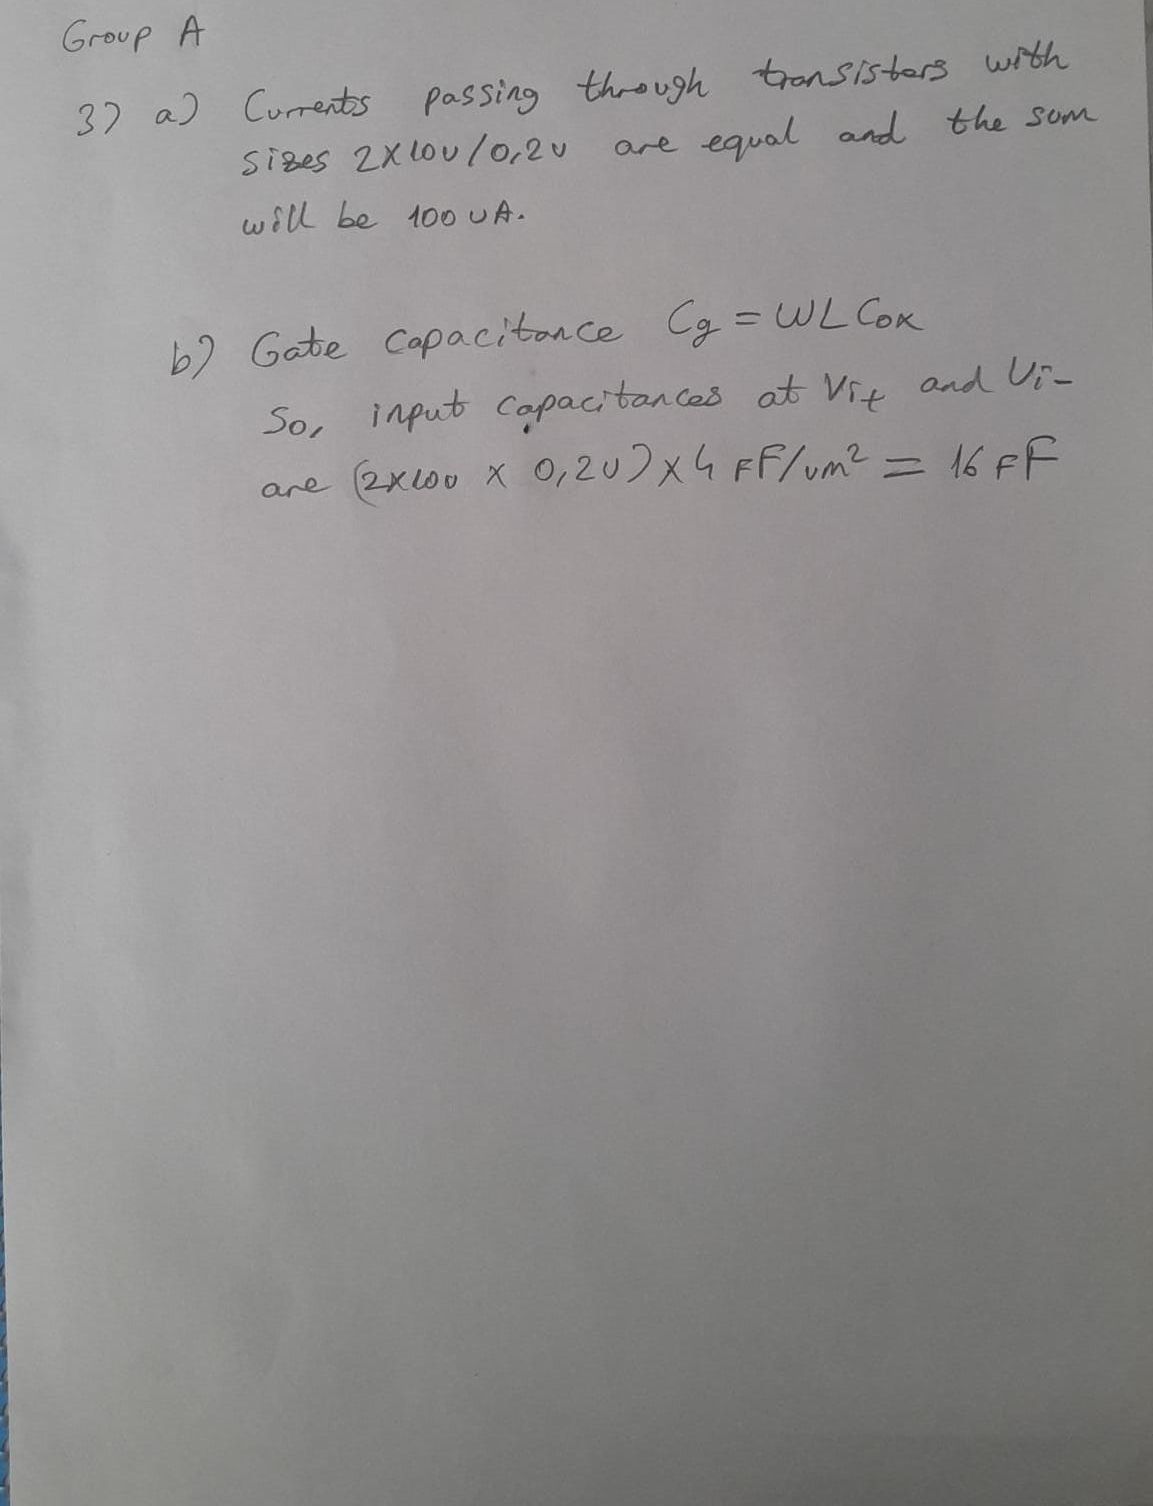 Group A
3) a) Currents passing through transistors with
sizes 2x10u/0,2u are equal and the sum
will be 100 uA.
b) Gate capacitance Cg = WLCox
So, input capacitances at Vi+ and Vi-
are (2x10u x 0,2u) x 4 fF/um² = 16 fF